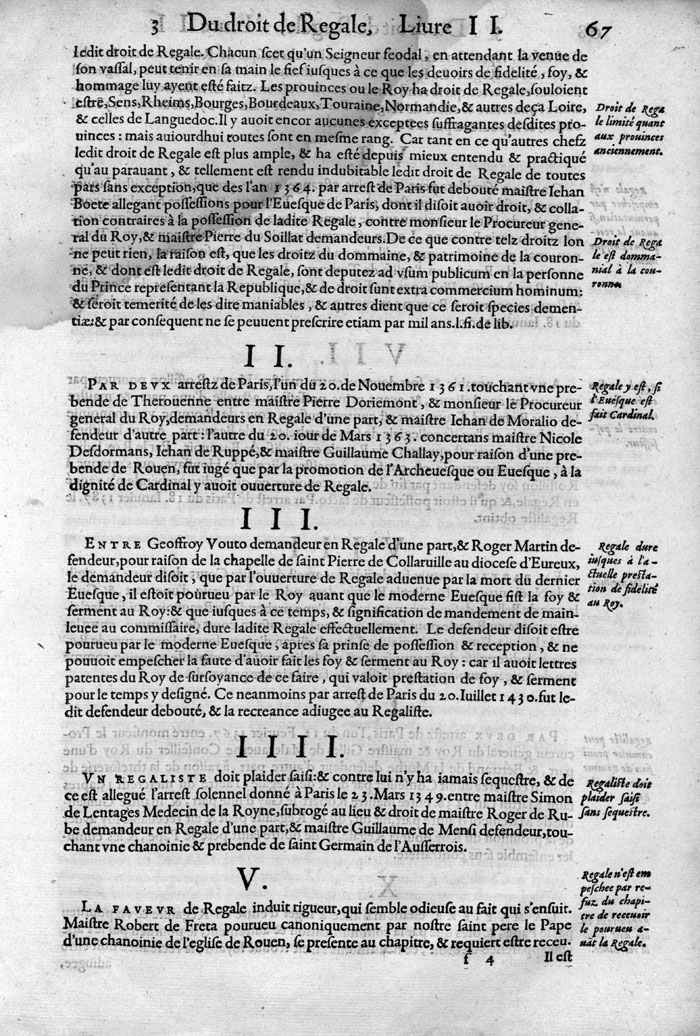 3 Du droit de Regale, Liure II. 67
ledit droit de Regale. Chacun sçet qu'un Seigneur feodal, en attendant la venue de
son vassal, peut tenir en sa main le fief iusques à ce que les deuoirs de fidelité, foy, &
hommage luy ayent esté faitz. Les prouinces ou le Roy ha droit de Regale, souloient
estre, Sens, Rheims, Bourges, Bourdeaux, Touraine, Normandie, & autres deça Loire,
& celles de Languedoc. Il y auoit encor aucunes exceptees suffragantes desdites pro-
uinces: mais auiourdhui toutes sont en mesme rang. Car tant en ce qu'autres chefz
ledit droit de Regale est plus ample, & ha esté depuis mieux entendu & practiqué
qu'au parauant, & tellement est rendu indubitable ledit droit de Regale de toutes
pars sans exception, que des l'an 1364. par arrest de Paris fut debouté maistre Iehan
Boete allegant possessions pour l'Euesque de Paris, dont il disoit auoir droit, & colla-
tion contraires à la possession de ladite Regale, contre monsieur le Procureur gene-
ral du Roy, & maistre Pierre du Soillat demandeurs. De ce que contre telz droitz lon
ne peut rien, la raison est, que les droitz du dommaine, & patrimoine de la couron-
ne, & dont est ledit droit de Regale, sont deputez ad vsum publicum en la personne
du Prince representant la Republique, & de droit sunt extra commercium hominum:
& seroit temerité de les dire maniables, & autres dient que ce seroit species demen-
tiæ: & par consequent ne se peuuent prescrire etiam par mil ans. l. fi. de lib.
Droit de Rega
le limité quant
aux prouinces
anciennement.
Droit de Rega
le est domma-
nial à la cou-
ronne
II.
PAR DEVX arrestz de Paris, l'un du 20. de Nouembre 1361. touchant vne pre-
bende de Therouenne entre maistre Pierre Doriemont, & monsieur le Procureur
general du Roy, demandeurs en Regale d'une part, & maistre Iehan de Moralio de-
fendeur d'autre part: l'autre du 20. iour de Mars 1363. concertans maistre Nicole
Desdormans, Iehan de Ruppé, & maistre Guillaume Challay, pour raison d'une pre-
bende de Rouen, fut iugé que par la promotion de l'Archeuesque ou Euesque, à la
dignité de Cardinal y auoit ouuerture de Regale.
Regale y est, si
l'Euesque est
fait Cardinal.
III.
ENTRE Geoffroy Vouto demandeur en Regale d'une part, & Roger Martin de-
fendeur, pour raison de la chapelle de saint Pierre de Collaruille au diocese d'Eureux,
le demandeur disoit, que par l'ouuerture de Regale aduenue par la mort du dernier
Euesque, il estoit pourueu par le Roy auant que le moderne Euesque fist la foy &
serment au Roy: & que iusques à ce temps, & signification de mandement de main-
leuee au commissaire, dure ladite Regale effectuellement. Le defendeur disoit estre
pourueu par le moderne Euesque, apres sa prinse de possession & reception, & ne
pouuoit empescher la faute d'auoir fait les foy & serment au Roy: car il auoit lettres
patentes du Roy de sursoyance de ce faire, qui valoit prestation de foy, & serment
pour le temps y designé. Ce neanmoins par arrest de Paris du 20. Iuillet 1430. fut le-
dit defendeur debouté, & la recreance adiugee au Regaliste.
Regale dure
iusques à l'a-
ctuelle presta-
tion de fidelité
au Roy.
IIII.
VN REGALISTE doit plaider saisi: & contre lui n'y ha iamais sequestre, & de
ce est allegué l'arrest solennel donné à Paris le 23. Mars 1349. entre maistre Simon
de Lentages Medecin de la Royne, subrogé au lieu & droit de maistre Roger de Ru-
be demandeur en Regale d'une part, & maistre Guillaume de Mensi defendeur, tou-
chant vne chanoinie & prebende de saint Germain de l'Ausserrois.
Regaliste doit
plaider saisi
sans sequestre.
V.
LA FAVEVR de Regale induit rigueur, qui semble odieuse au fait qui s'ensuit.
Maistre Robert de Freta pourueu canoniquement par nostre saint pere le Pape
d'une chanoinie de l'eglise de Rouen, se presente au chapitre, & requiert estre receu.
Regale n'est em
peschee par re-
fuz du chapi-
tre de receuoir
le pourueu a-
uāt la Regale.
f 4 Il est